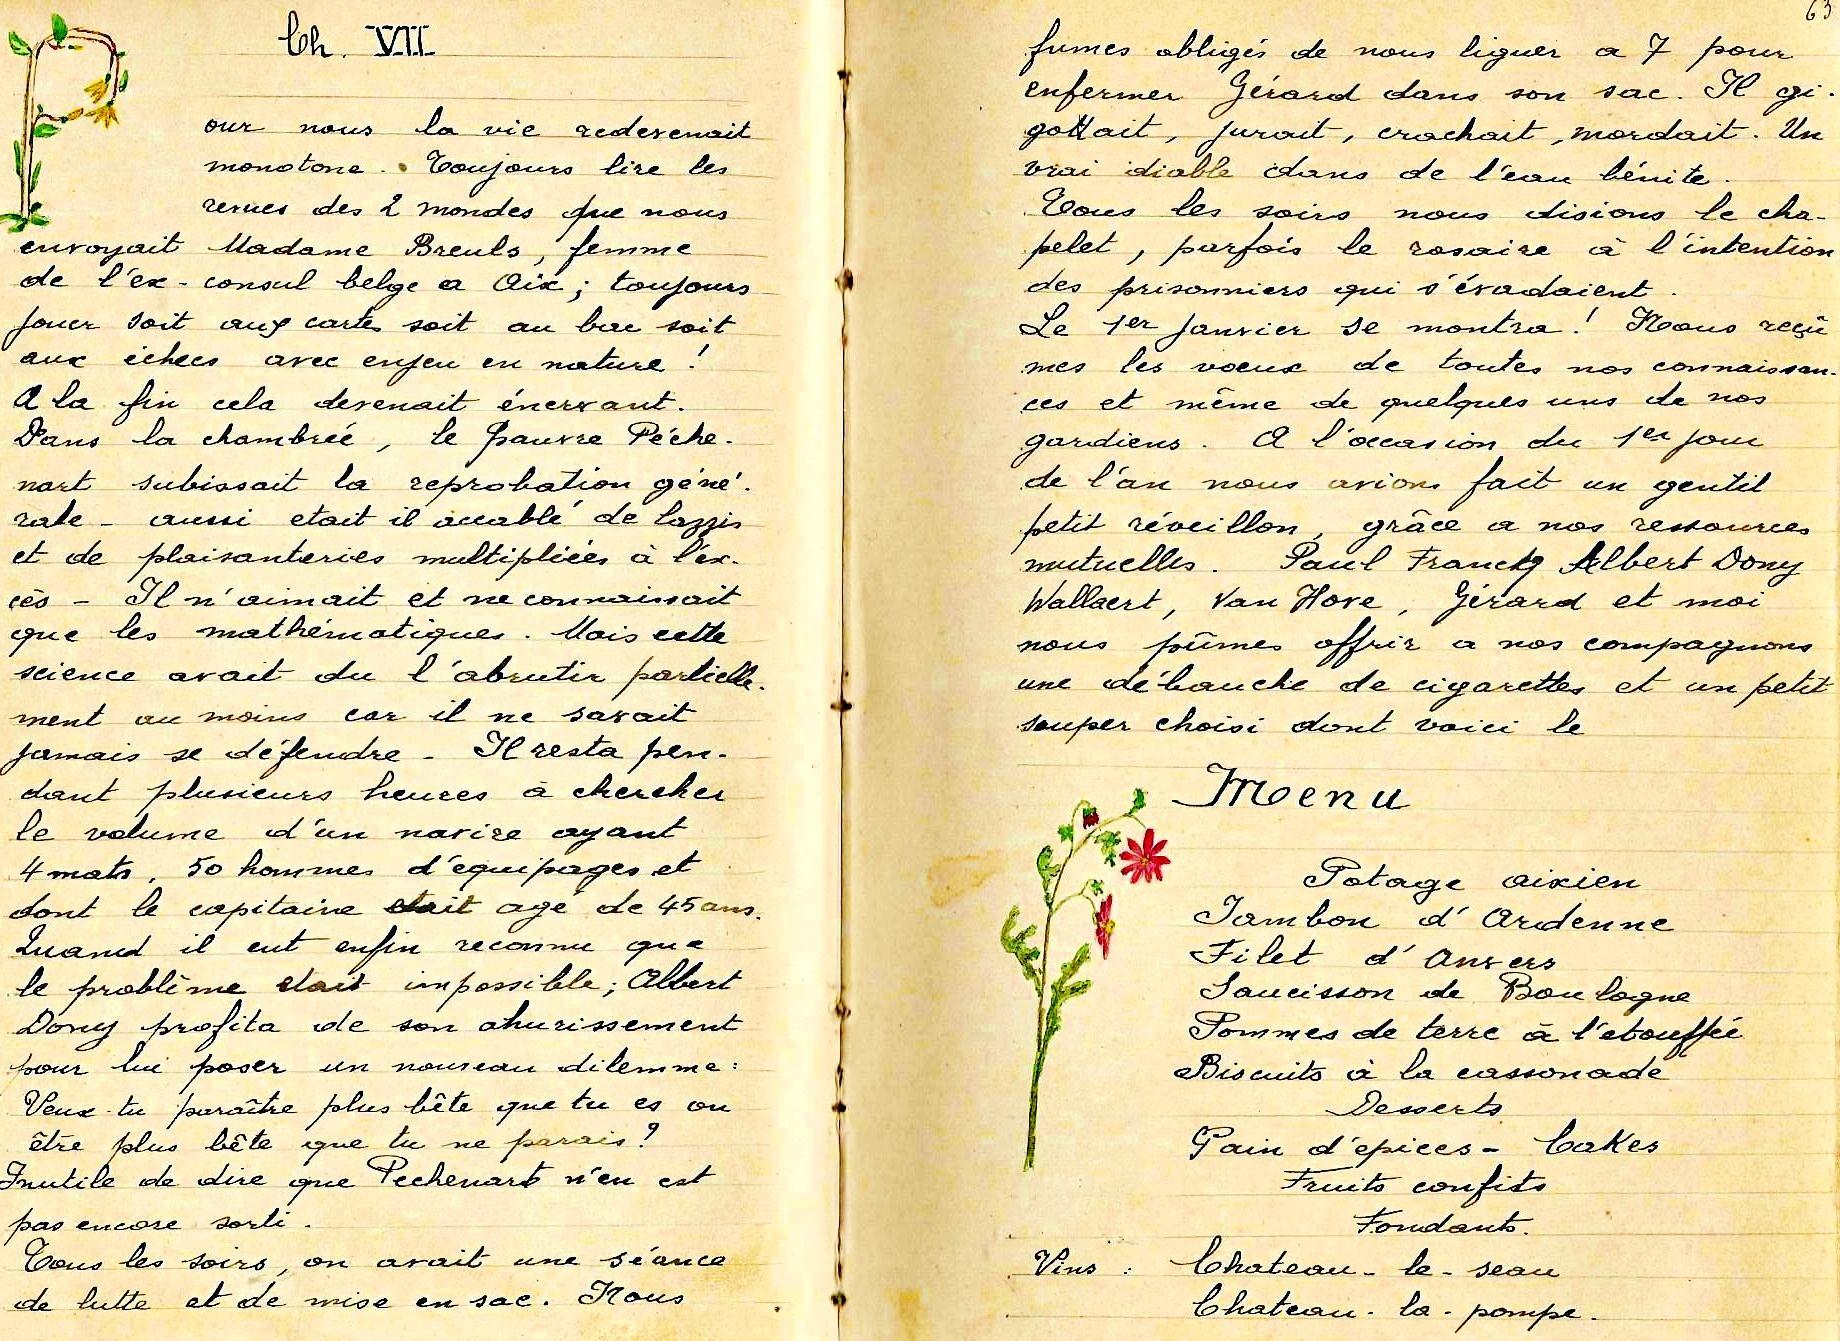 Ch. VII
Pour nous la vie redevenait
monotone. Toujours lire les
revues des 2 mondes que nous
envoyait Madame Breuls, femme
de l'ex-consul belge a Aix; toujours
jouer soit aux cartes soit au bac soit
aux échecs avec enjeu en nature !
A la fin cela devenait énervant.
Dans la chambrée, le pauvre Péche-
nart subissait la reprobation géné-
rale - aussi etait il accablé de lazzis
et de plaisanteries multipliées à l'ex-
cès - Il n'aimait et ne connaissait
que les mathématiques. Mais cette
science avait du l'abrutir partielle-
ment au moins car il ne savait
jamais se défendre - Il resta pen-
dant plusieurs heures à chercher
le volume d'un navire ayant
4 mats, 50 hommes d'équipages et
dont le capitaine etait agé de 45 ans.
Quand il eut enfin reconnu que
le problème etait impossible; Albert
Dony profita de son ahurissement
pour lui poser un nouveau dilemme :
Veux-tu paraître plus bête que tu es ou
être plus bête que tu ne parais ?
Inutile de dire que Pechenart n'en est
pas encore sorti.
Tous les soirs, on avait une séance
de lutte et de mise en sac. Nous
63
fumes obligés de nous liguer a 7 pour
enfermer Gérard dans son sac. Il gi-
gottait, jurait, crachait, mordait. Un
vrai diable dans de l'eau bénite.
Tous les soirs nous disions le cha-
pelet, parfois le rosaire à l'intention
des prisonniers qui s'évadaient.
Le 1er Janvier se montra ! Nous reçû
mes les voeux de toutes nos connaissan-
ces et même de quelques uns de nos
gardiens. A l'occasion du 1er jour
de l'an nous avions fait un gentil
petit réveillon, grâce a nos ressources
mutuelles. Paul Francq Albert Dony
Wallaert, Van Hove, Gérard et moi
nous pûmes offrir a nos compagnons
une débauche de cigarettes et un petit
souper choisi dont voici le
Menu
Potage aixien
Jambon d'Ardenne
Filet d'Anvers
Saucisson de Boulogne
Pommes de terre à l'etouffée
Biscuits à la cassonade
Desserts
Pain d'épices - Cakes
Fruits confits
Fondants.
Vins : Chateau - le - seau
Chateau - la - pompe.